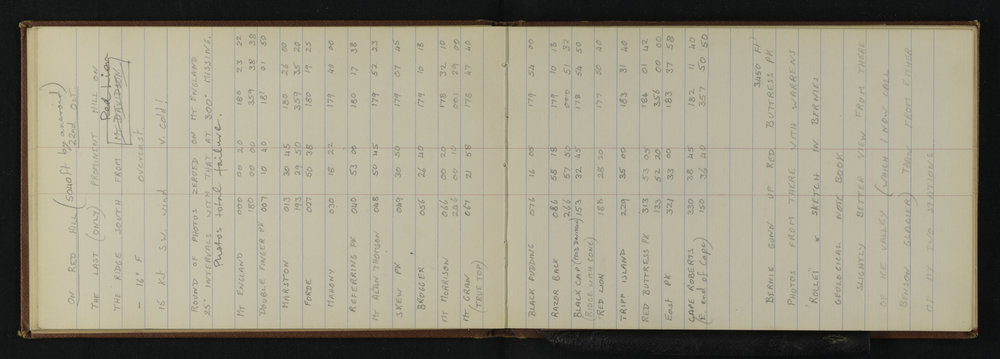 ON RED HILL (5040 ft by aneroid)
22nd Oct.
THE LAST (ONLY) PROMINENT HILL ON
Red Lion
THE RIDGE SOUTH FROM MT DAVIDSON
- 16° F OVERCAST
15 Kt S.W. wind V. cold!
ROUND OF PHOTOS ZEROED ON MT ENGLAND
25° INTERVALS WITH THAT AT 300° MISSING.
Photos total failure.
MT ENGLAND 000 00 20 180 23 22
180 00 00 359 38 38
DOUBLE FINGER PK 007 10 40 181 01 50
MARSTON 013 30 45 180 26 00
193 29 50 359 35 20
FORDE 007 50 38 180 19 25
MAHONY 030 18 22 179 40 00
REFERRING PK 040 53 00 180 17 38
MT ALLAN THOMSON 048 50 45 179 52 23
SKEW PK 049 30 50 179 07 45
BROGGER 056 26 40 179 10 18
MT MORRISON 066 00 20 178 32 10
246 00 10 001 29 00
MT GRAN 067 21 58 178 47 40
(TRUE TOP)
BLACK PUDDING 076 16 05 179 54 00
RAZOR BACK 086 58 18 179 10 18
266 57 50 000 51 32
BLACK CAP 153 32 45 178 54 50
(RIDGE WITH CONE)
RED LION 188 28 20 177 50 40
TRIPP ISLAND 229 35 00 183 31 40
RED BUTTRESS PK 313 53 05 184 01 42
133 52 20 356 00 00
East PK 321 33 00 183 37 58
CAPE ROBERTS 330 38 45 182 11 50
(E end of Cape) 150 36 40 357 50 50
3450 Ft
BERNIE GUNN UP RED BUTTRESS PK
PHOTOS FROM THERE WITH WARRENS
"ROLLEI" & SKETCH IN BERNIES
GEOLOGICAL NOTE BOOK
SLIGHTLY BETTER VIEW FROM THERE
OF THE VALLEY (WHICH I NOW CALL
BENSON GLACIER) THAN FROM EITHER
OF MY TWO STATIONS.